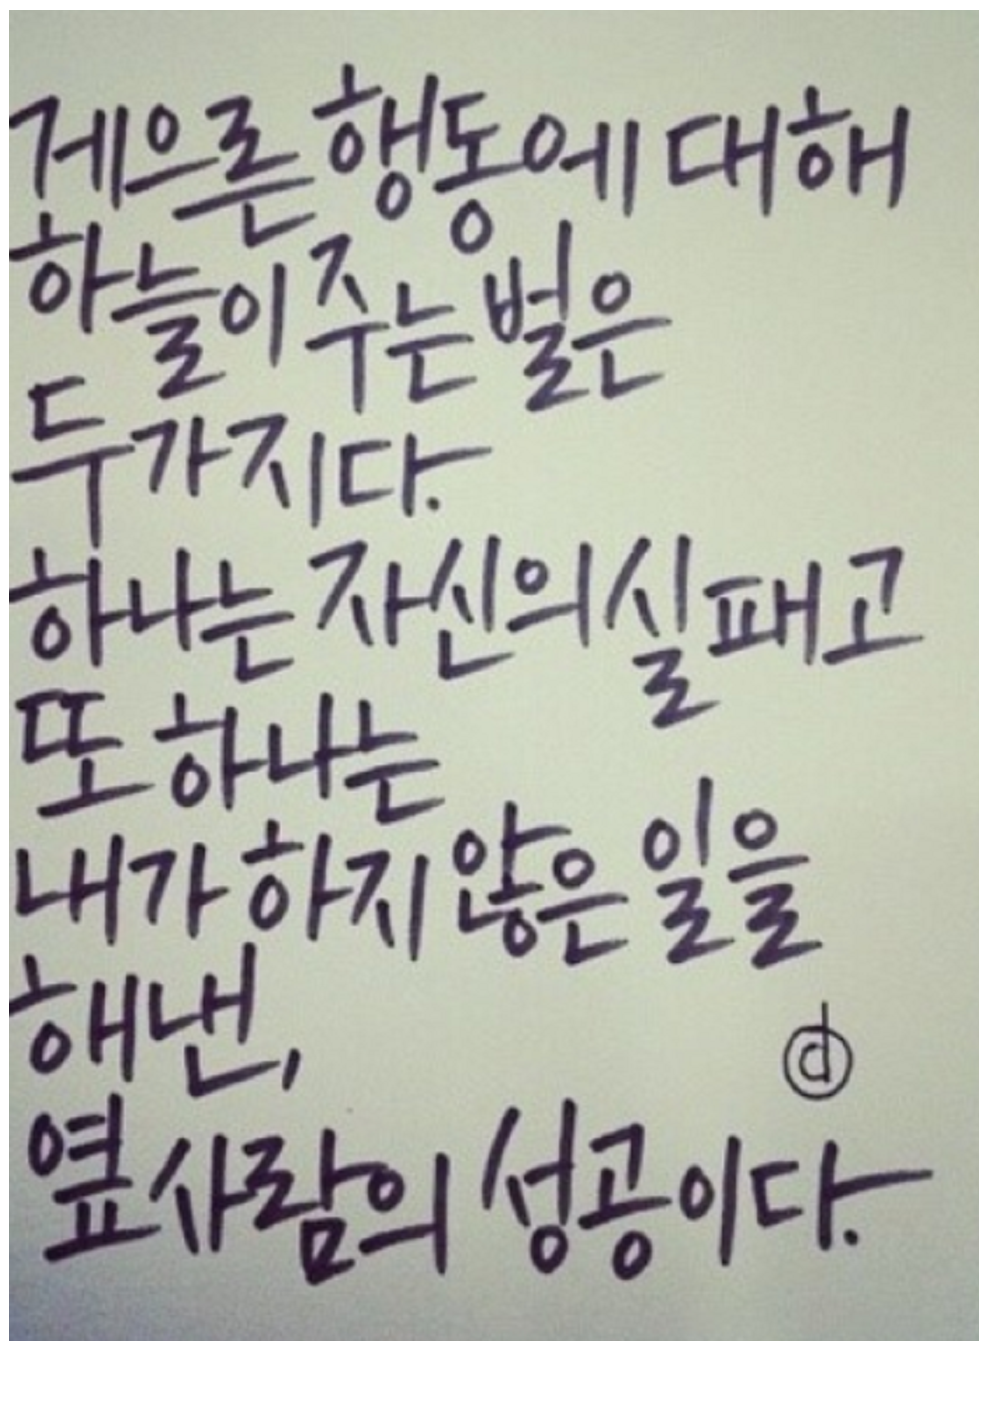 게으른 행동에 대해
하늘이 주는 벌은
두가지다.
하나는 자신의 실패고
또 하나는
내가 하지 않은 일을
해낸,
d
옆사람의 성공이다.